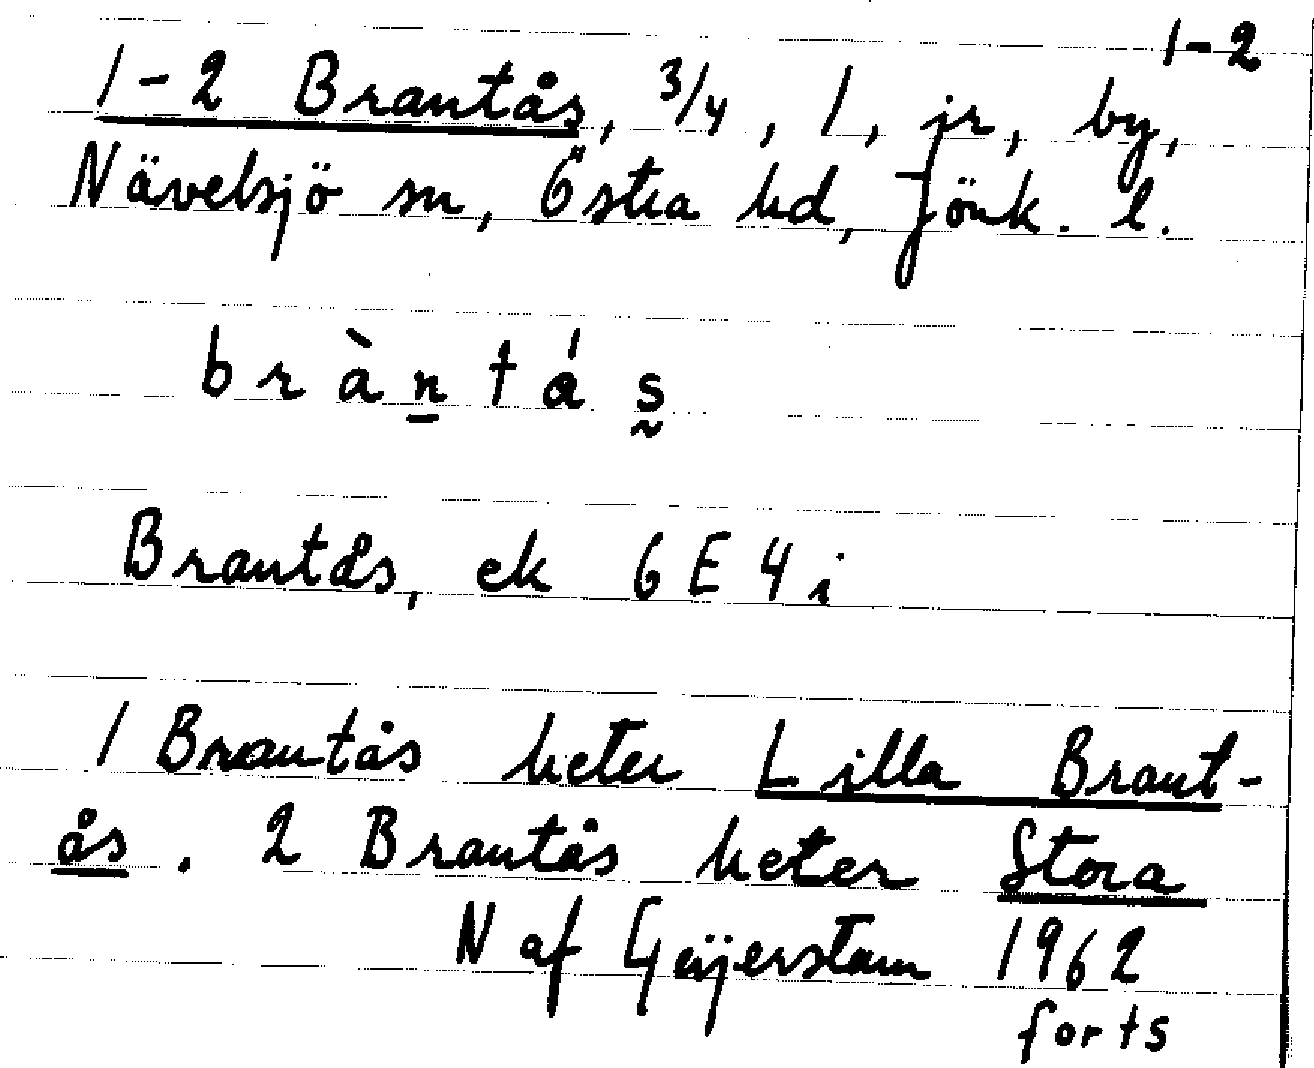 1-2
1-2 Brantås, 3/4, 1, jr, by,
Nävelsjö sn, Östra hd, Jönk. l.
b r à n t á s
Brantås, ek 6 E 4 i
1 Brantås heter Lilla Brant-
ås. 2 Brantås heter Stora
N af Geijerstam 1962
forts